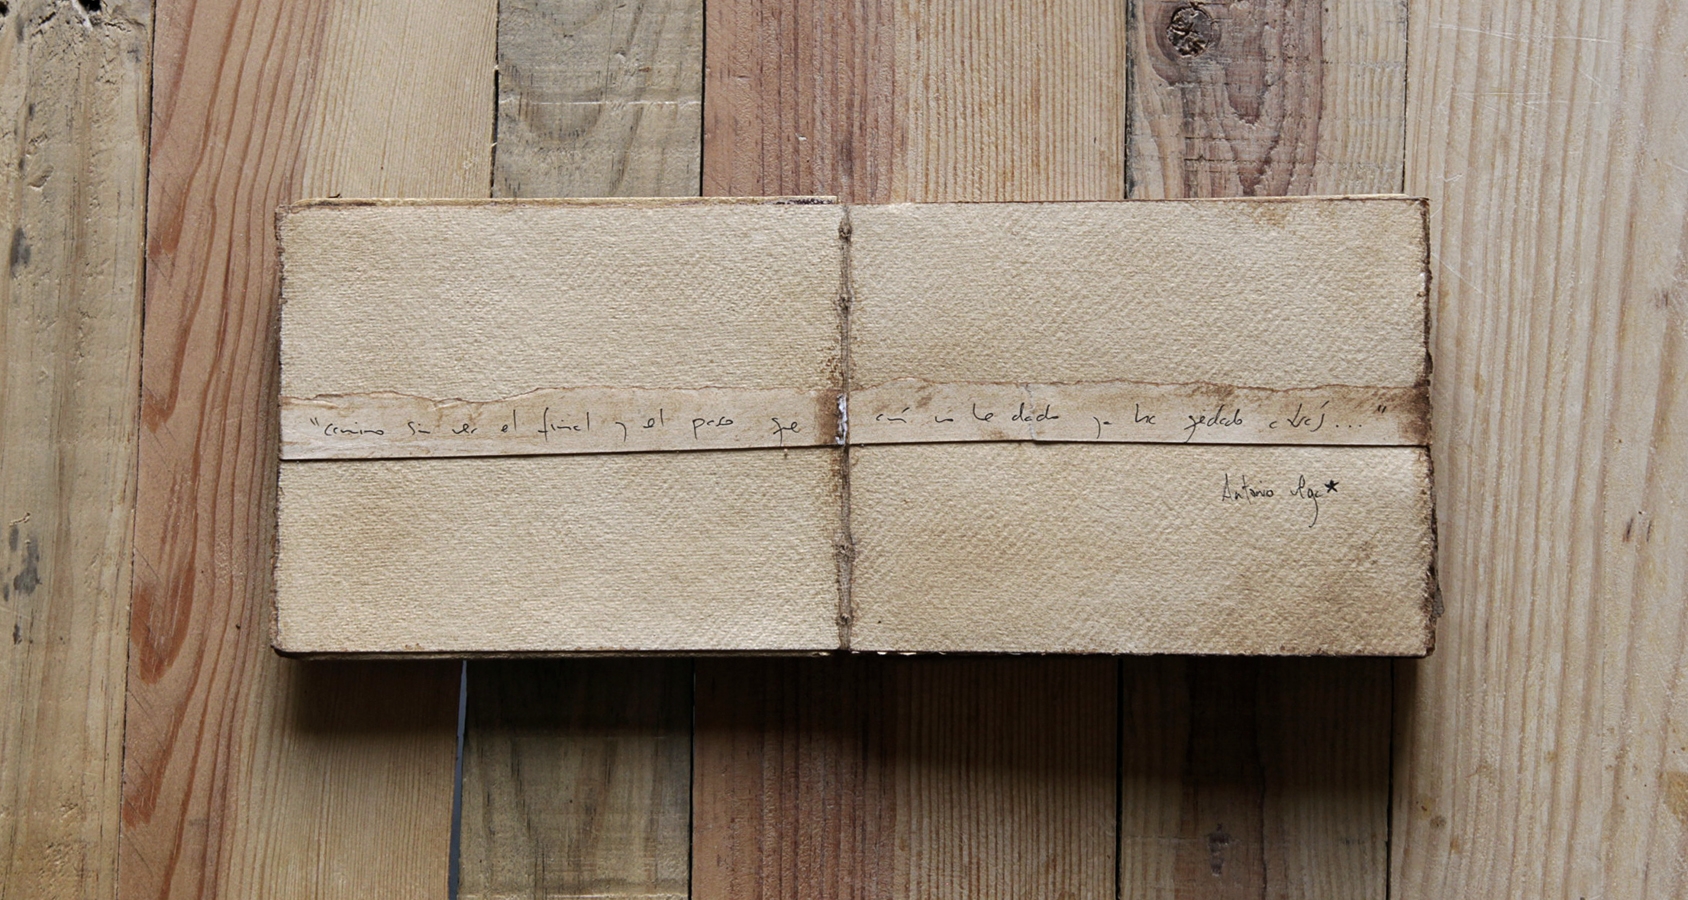 "camino sin ver el final y el paso que aún no he dado ya ha quedado atrás..."
Antonio